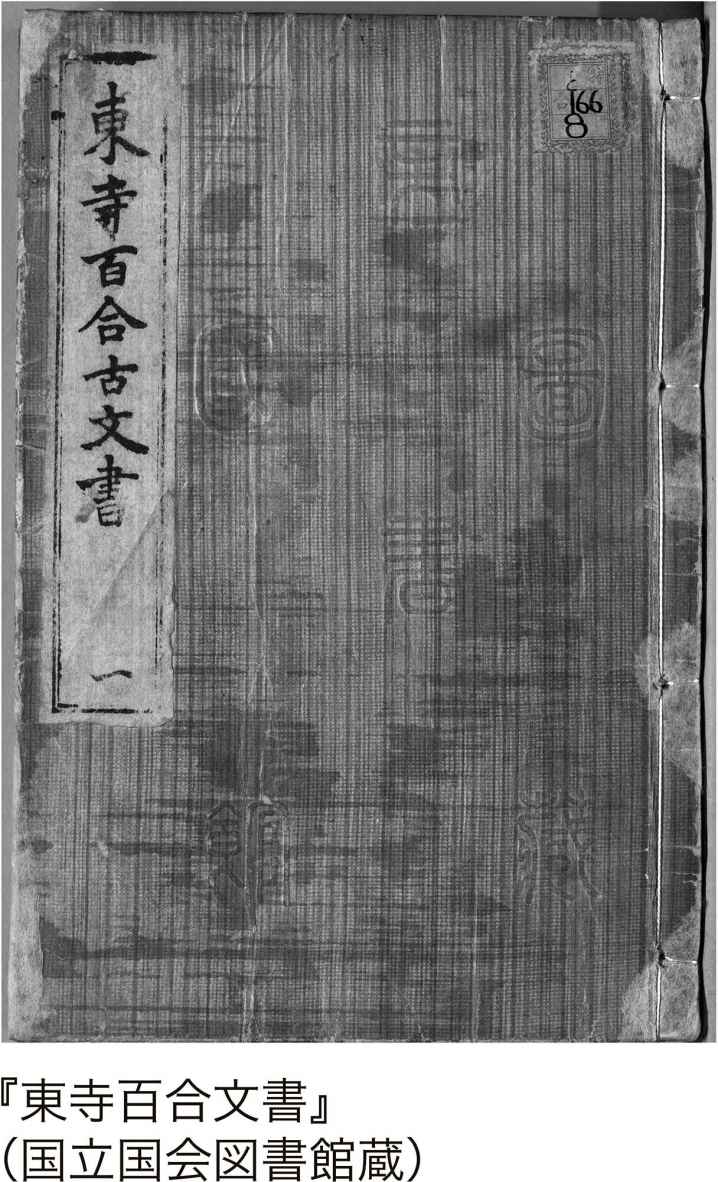 東寺百合古文書
一
166
8
圖
書
藏
館
『東寺百合文書』
（国立国会図書館蔵）